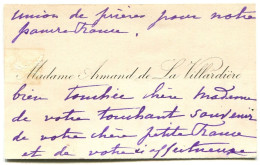 union de prières pour notre
pauvre France.
Madame Armand de La Villardière
bien touchée chère Madame
de votre touchant souvenir
de votre chère petite France
et de votre si affectueuse